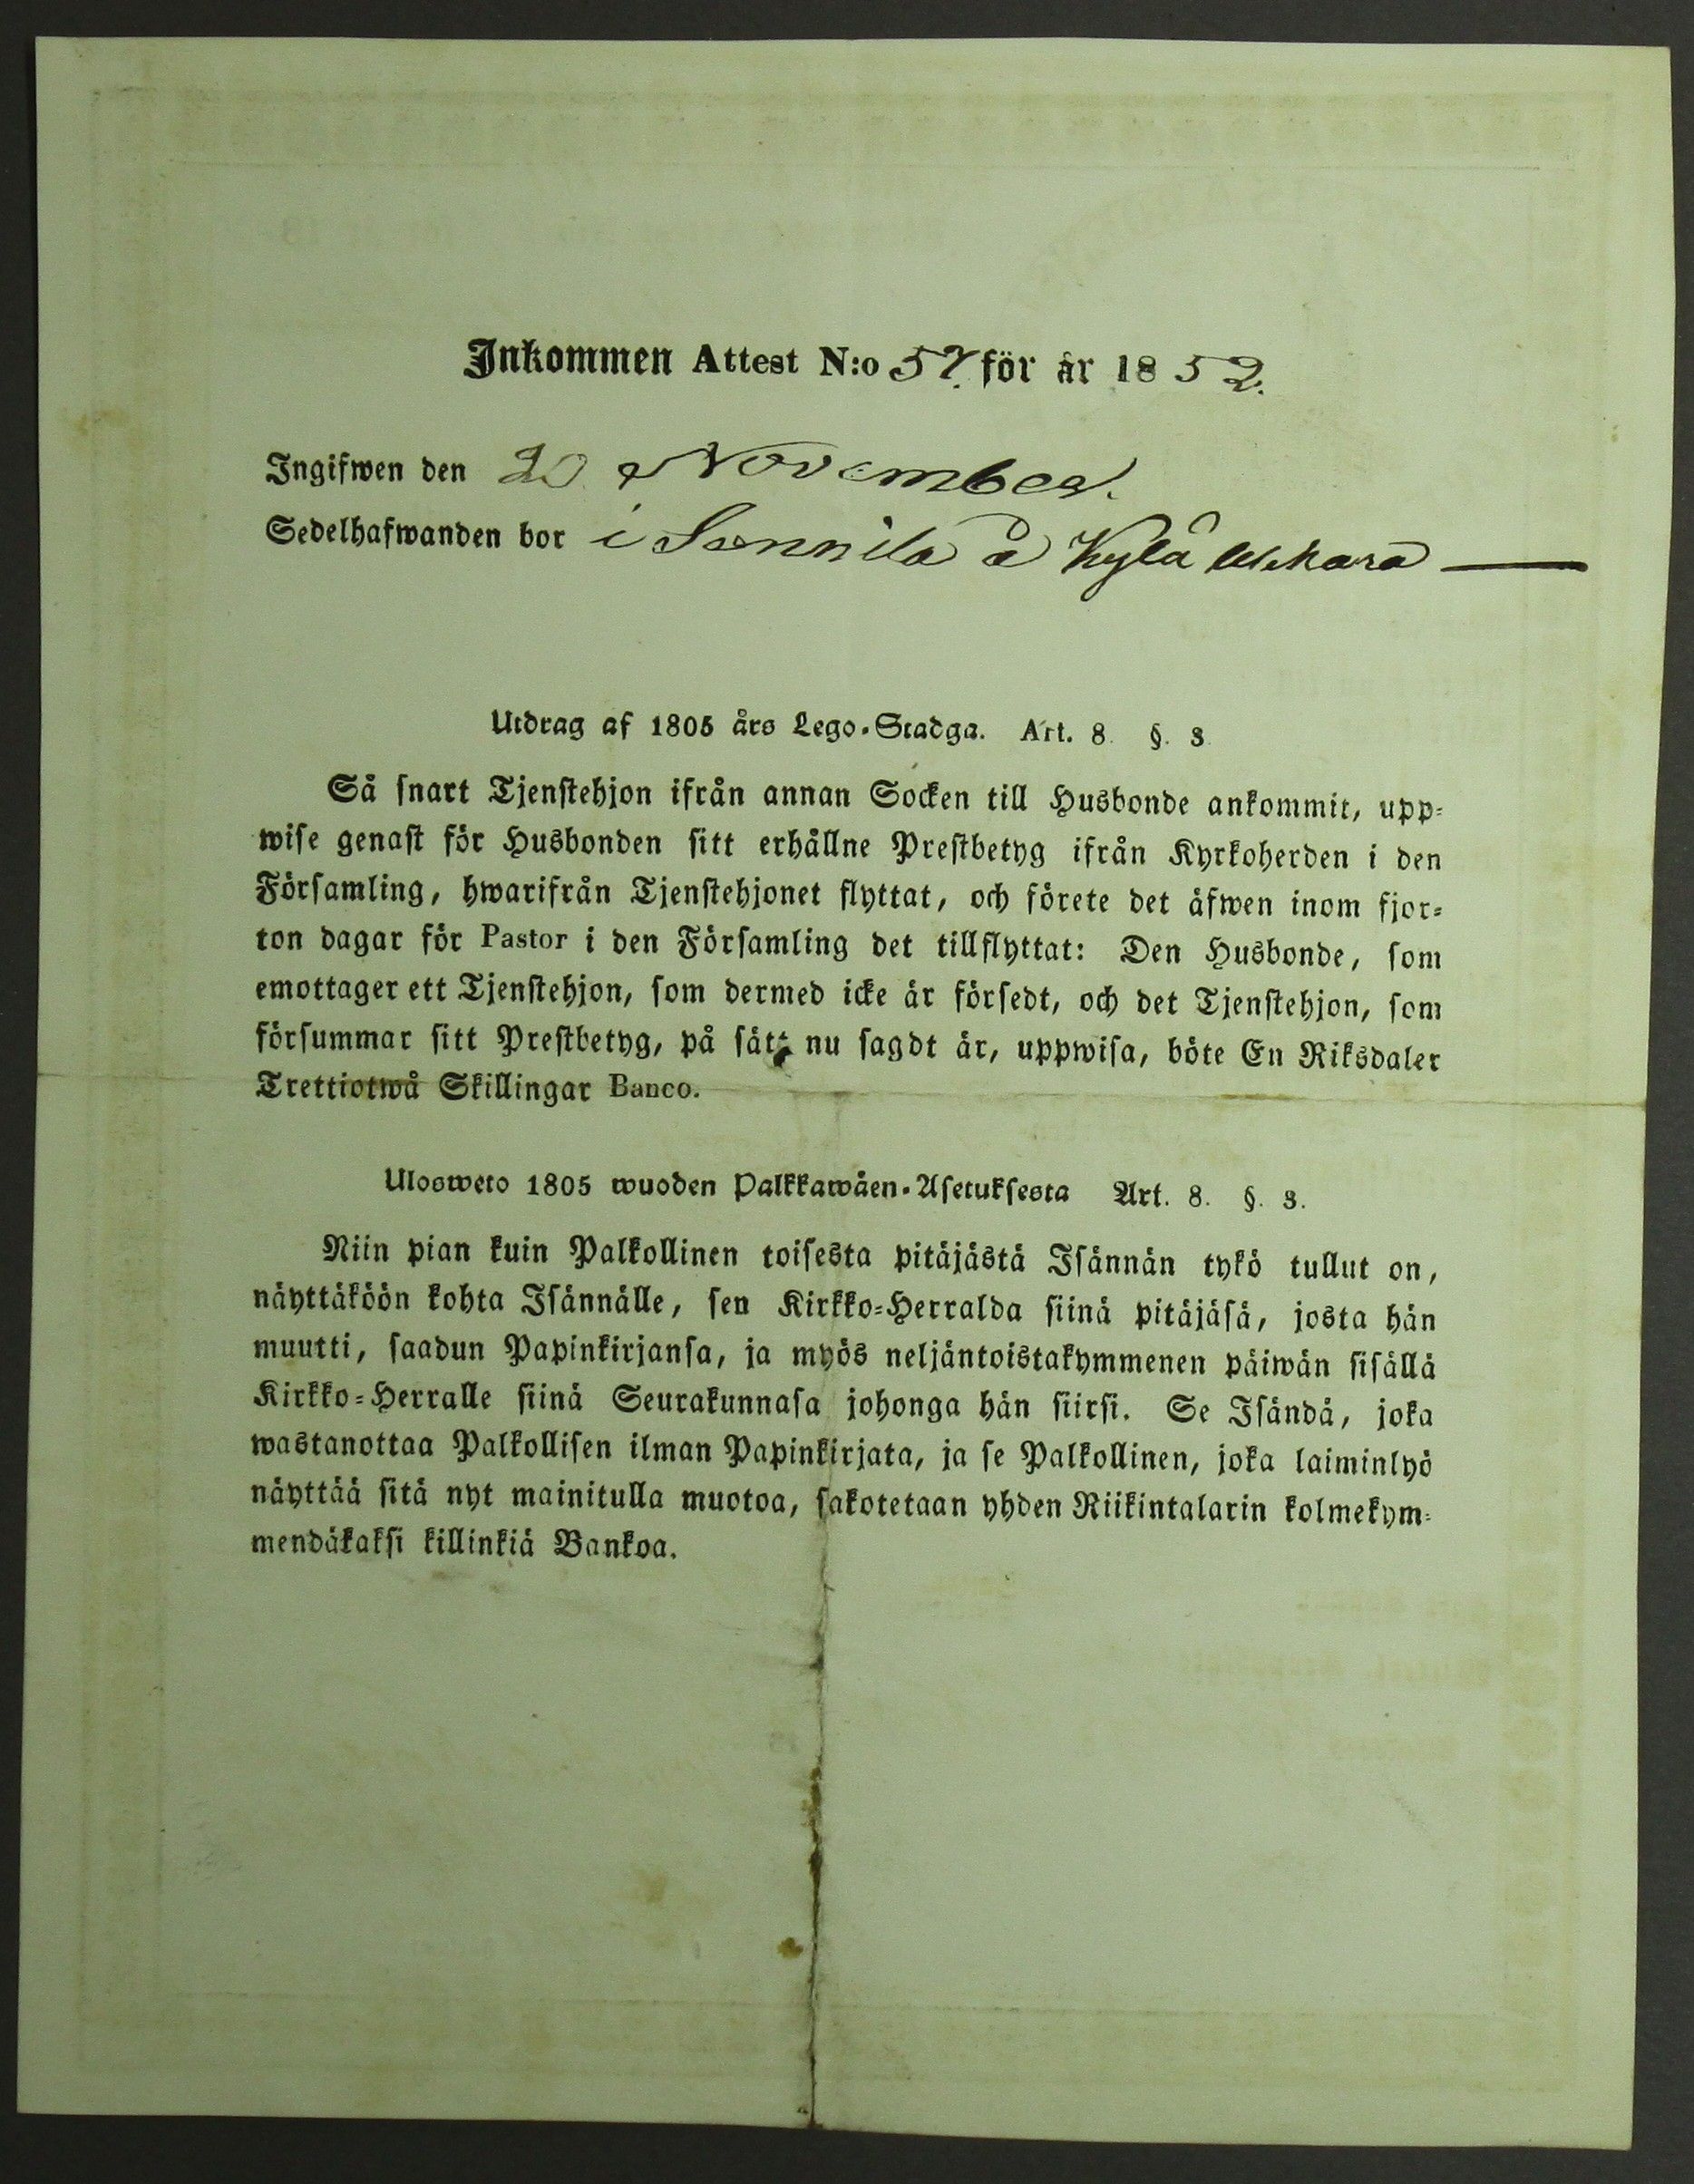 Inkommen Attest N:o 57. för år 1852.
Ingifwen den 20 November.
Sedelhafwanden bor i Sonnila å Kylä
Utdrag af 1805 års Lego-Stadga. Art. 8. §. 3
Så snart Tjenstehjon ifrån annan Socken till Husbonde ankommit, upp-
wise genast för Husbonden sitt erhållne Prestbetyg ifrån Kyrkoherden i den
Församling, hwarifrån Tjenstehjonet flyttat, och förete det äfwen inom fjor-
ton dagar för Pastor i den Församling det tillflyttat: Den Husbonde, som
emottager ett Tjenstehjon, som dermed icke är försedt, och det Tjenstehjon, som
försummar sitt Prestbetyg, på sätt nu sagdt är, uppwisa, böte En Riksdaler
Trettiotwå Skillingar Banco.
Ulosweto 1805 wuoden Palkkawäen-Asetuksesta Art. 8. §. 3.
Niin pian kuin Palkollinen toisesta pitäjästä Isännän tykö tullut on,
näyttäköön kohta Isännälle, sen Kirkko-Herralda siinä pitäjäsä, josta hän
muutti, saadun Papinkirjansa, ja myös neljäntoistakymmenen päiwän sisällä
Kirkko-Herralle siinä Seurakunnasa johonga hän siirsi. Se Isändä, joka
wastanottaa Palkollisen ilman Papinkirjata, ja se Palkollinen, joka laiminlyö
näyttää sitä nyt mainitulla muotoa, sakotetaan yhden Riikintalarin kolmekym-
mendäkaksi killinkiä Bankoa.